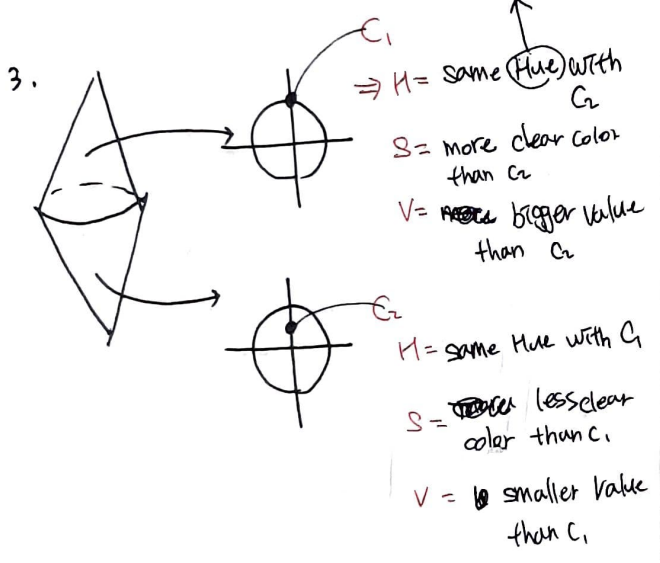 3.
C₁
⇒ H = same Hue with
C₂
S = more clear color
than C₂
V = bigger value
than C₂
C₂
H = same Hue with C₁
S = less clear
color than C₁
V = smaller value
than C₁